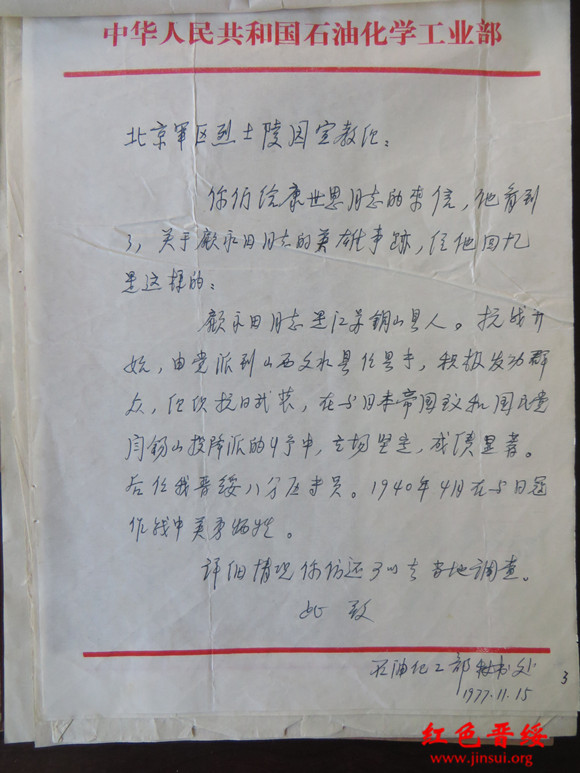 中华人民共和国石油化学工业部
北京军区烈士陵园宣教处：
你们给康世恩同志的来信，他看到
了，关于顾永田同志的英雄事迹，经他回忆
是这样的：
顾永田同志是江苏铜山县人。抗战开
始，由党派到山西文水县任县长，积极发动群
众，组织抗日武装，在与日本帝国主义和国民党
阎锡山投降派的斗争中，立场坚定，成绩显著。
后任我晋绥八分区专员。1940年4月在与日寇
作战中英勇牺牲。
详细情况你们还可以去当地调查。
此致
石油化工部秘书处
1977.11.15
3
红色晋绥
www.jinsui.org